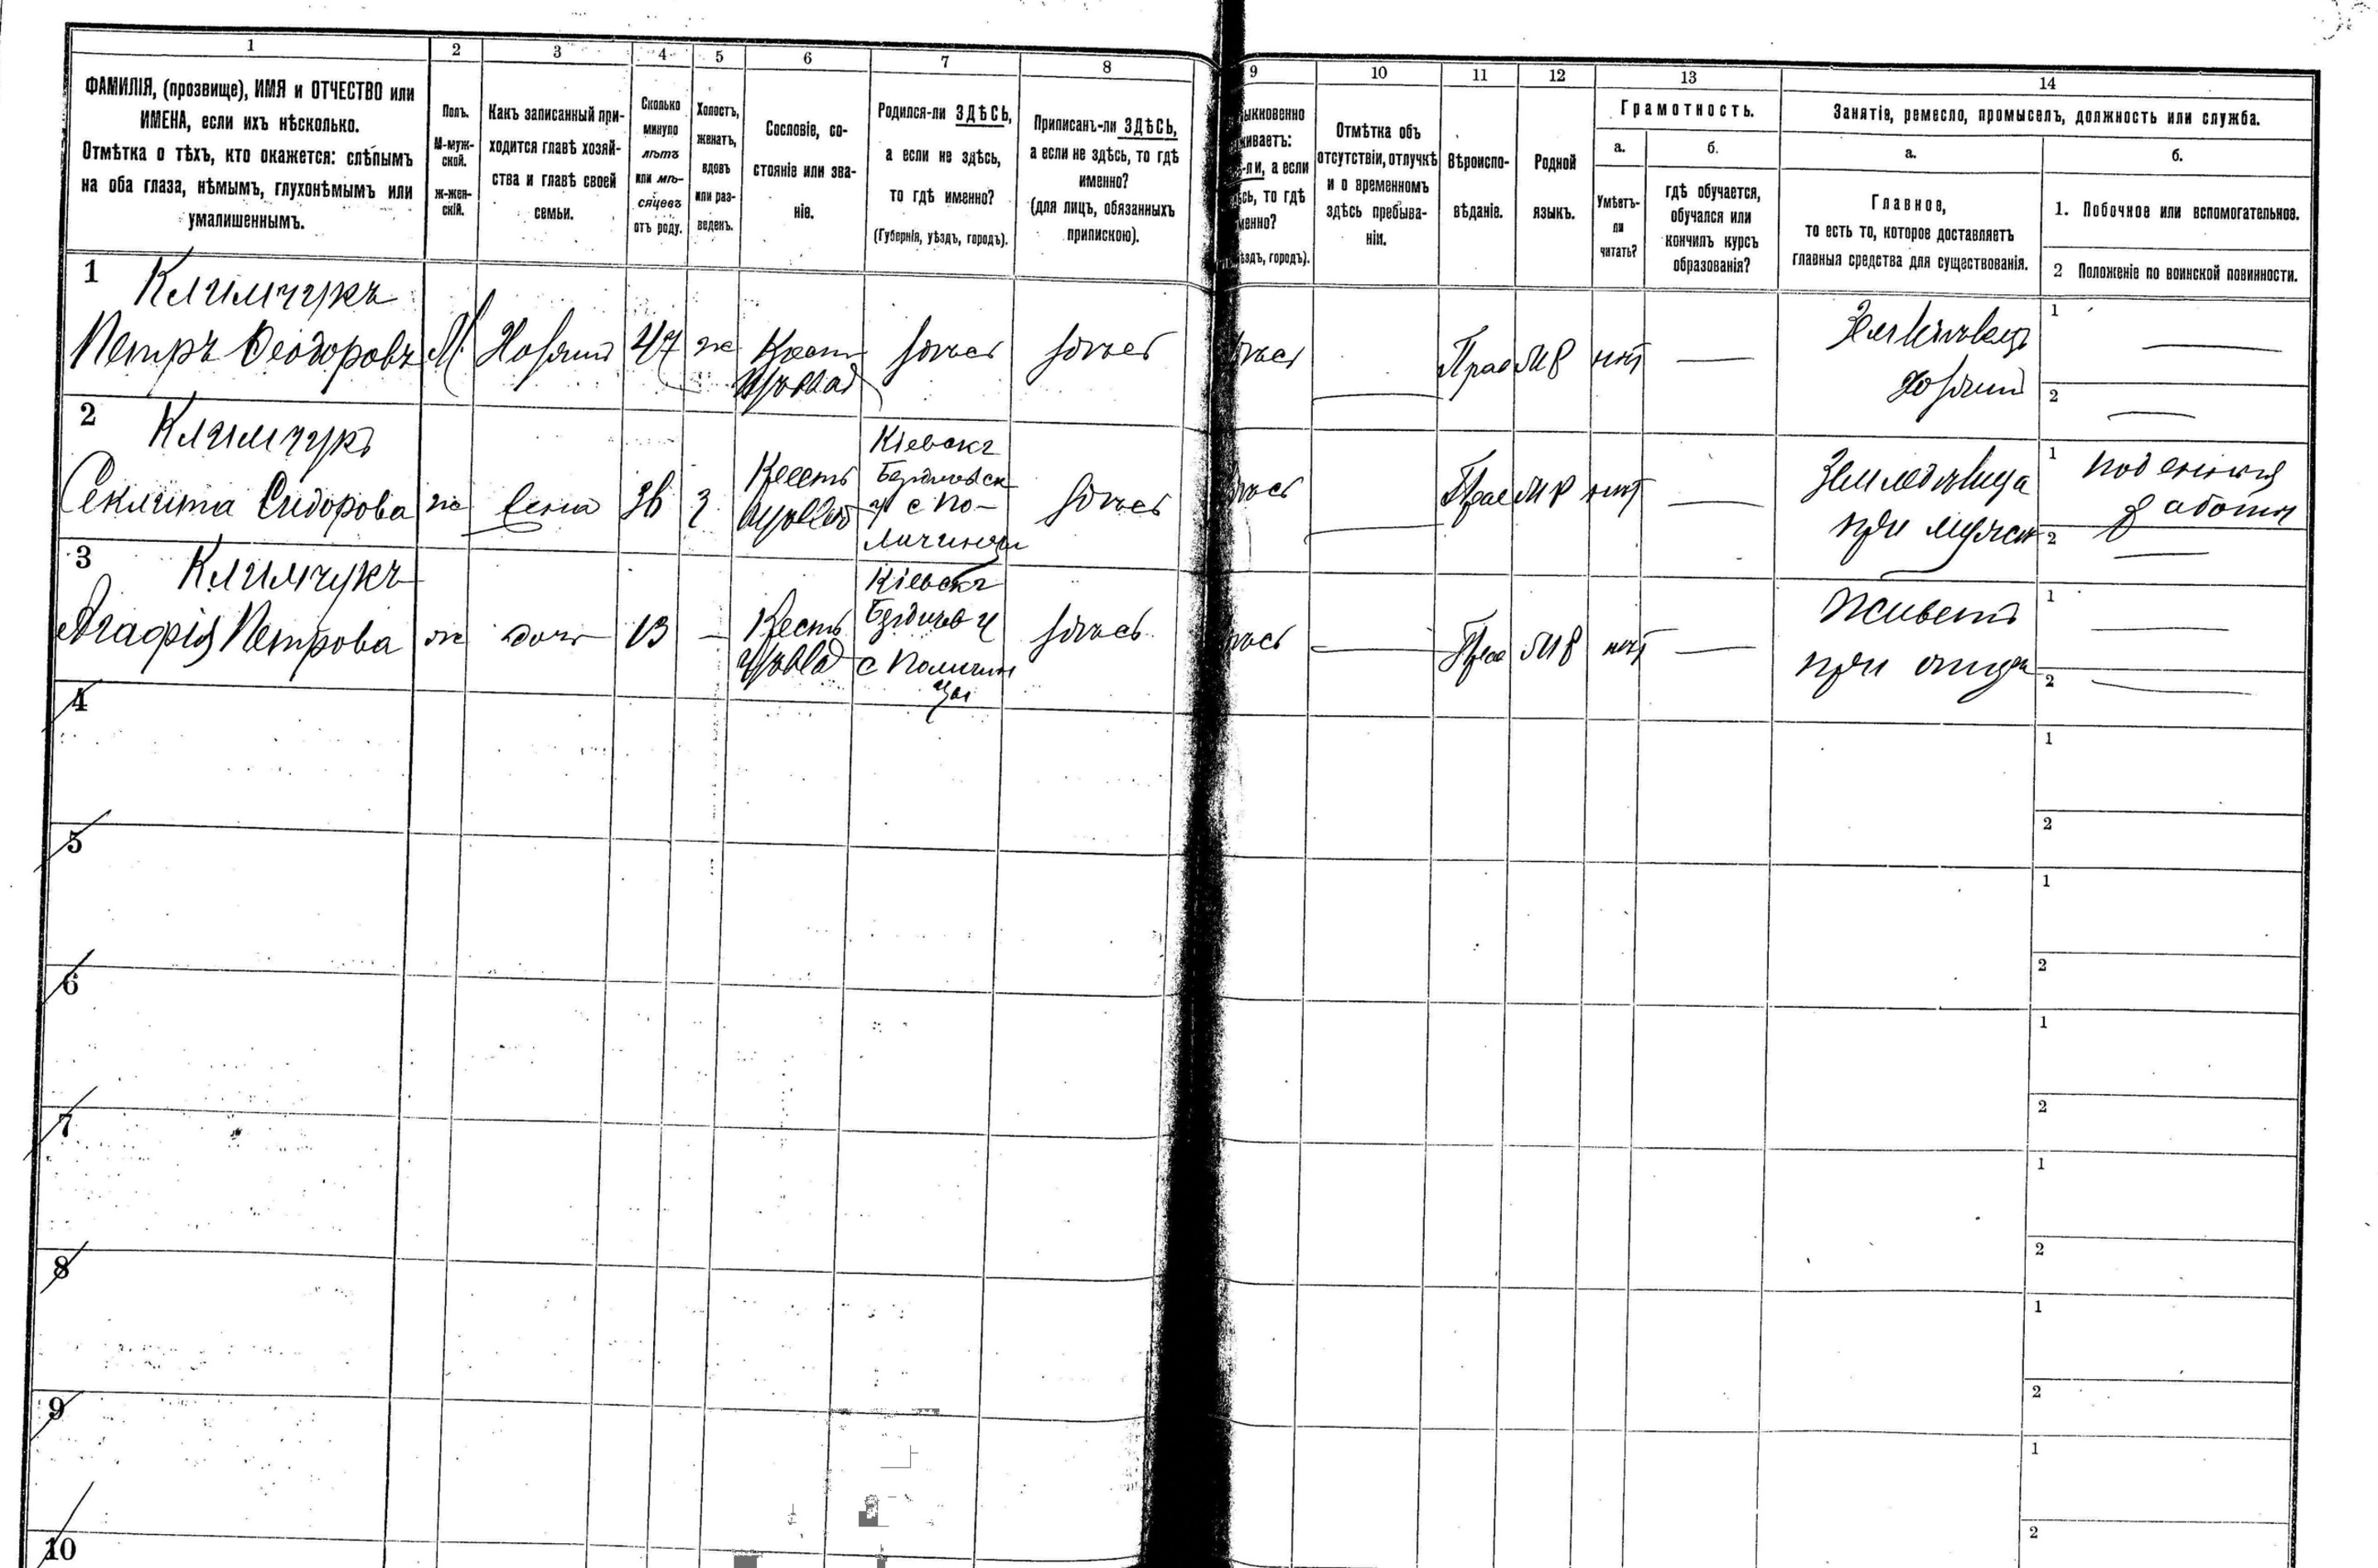 1
2
3
4
5
6
7
8
9
10
11
12
13
14
ФАМИЛІЯ, (прозвище), ИМЯ и ОТЧЕСТВО или
ИМЕНА, если ихъ нѣсколько.
Отмѣтка о тѣхъ, кто окажется: слѣпымъ
на оба глаза, нѣмымъ, глухонѣмымъ или
умалишеннымъ.
Полъ.
М-муж-
ской.
ж-жен-
скій.
Какъ записанный при-
ходится главѣ хозяй-
ства и главѣ своей
семьи.
Сколько
минуло
лѣтъ
или мѣ-
сяцевъ
отъ роду.
Холостъ,
женатъ,
вдовъ
или раз-
веденъ.
Сословіе, со-
стояніе или зва-
ніе.
Родился-ли ЗДѢСЬ,
а если не здѣсь,
то гдѣ именно?
(Губернія, уѣздъ, городъ).
Приписанъ-ли ЗДѢСЬ,
а если не здѣсь, то гдѣ
именно?
(для лицъ, обязанныхъ
припискою).
ыкновенно
живаетъ:
-ли, а если
сь, то гдѣ
менно?
ѣздъ, городъ).
Отмѣтка объ
отсутствіи, отлучкѣ
и о временномъ
здѣсь пребыва-
ніи.
Вѣроиспо-
вѣданіе.
Родной
языкъ.
Грамотность.
а.
Умѣетъ-
ли
читать?
б.
гдѣ обучается,
обучался или
кончилъ курсъ
образованія?
Занятіе, ремесло, промыселъ, должность или служба.
а.
Главное,
то есть то, которое доставляетъ
главныя средства для существованія.
б.
1. Побочное или вспомогательное.
2 Положеніе по воинской повинности.
1 Климчукъ
Петръ Ѳеодоровъ М. Хозяинъ 47 ж здѣсь здѣсь Прав МР нѣтъ
Хозяинъ
1
2
2 Климчукъ
Секлита Сидорова ж жена 36 з
Кіевская
с По-
личинцы
здѣсь Прав МР нѣтъ
Земледѣлица
при мужѣ
1 поденная
работа
2
3 Климчукъ
Агафія Петрова ж дочь 13 —
Кіевская
Бердичев у
с Поличин
цы
здѣсь Прав МР нѣтъ
Живетъ
при отцѣ
1
2
4
1
2
5
1
2
6
1
2
7
1
2
8
1
2
9
1
2
10